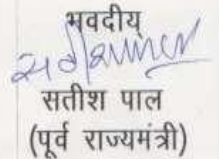 भवदीय
सतीश पाल
(पूर्व राज्यमंत्री)